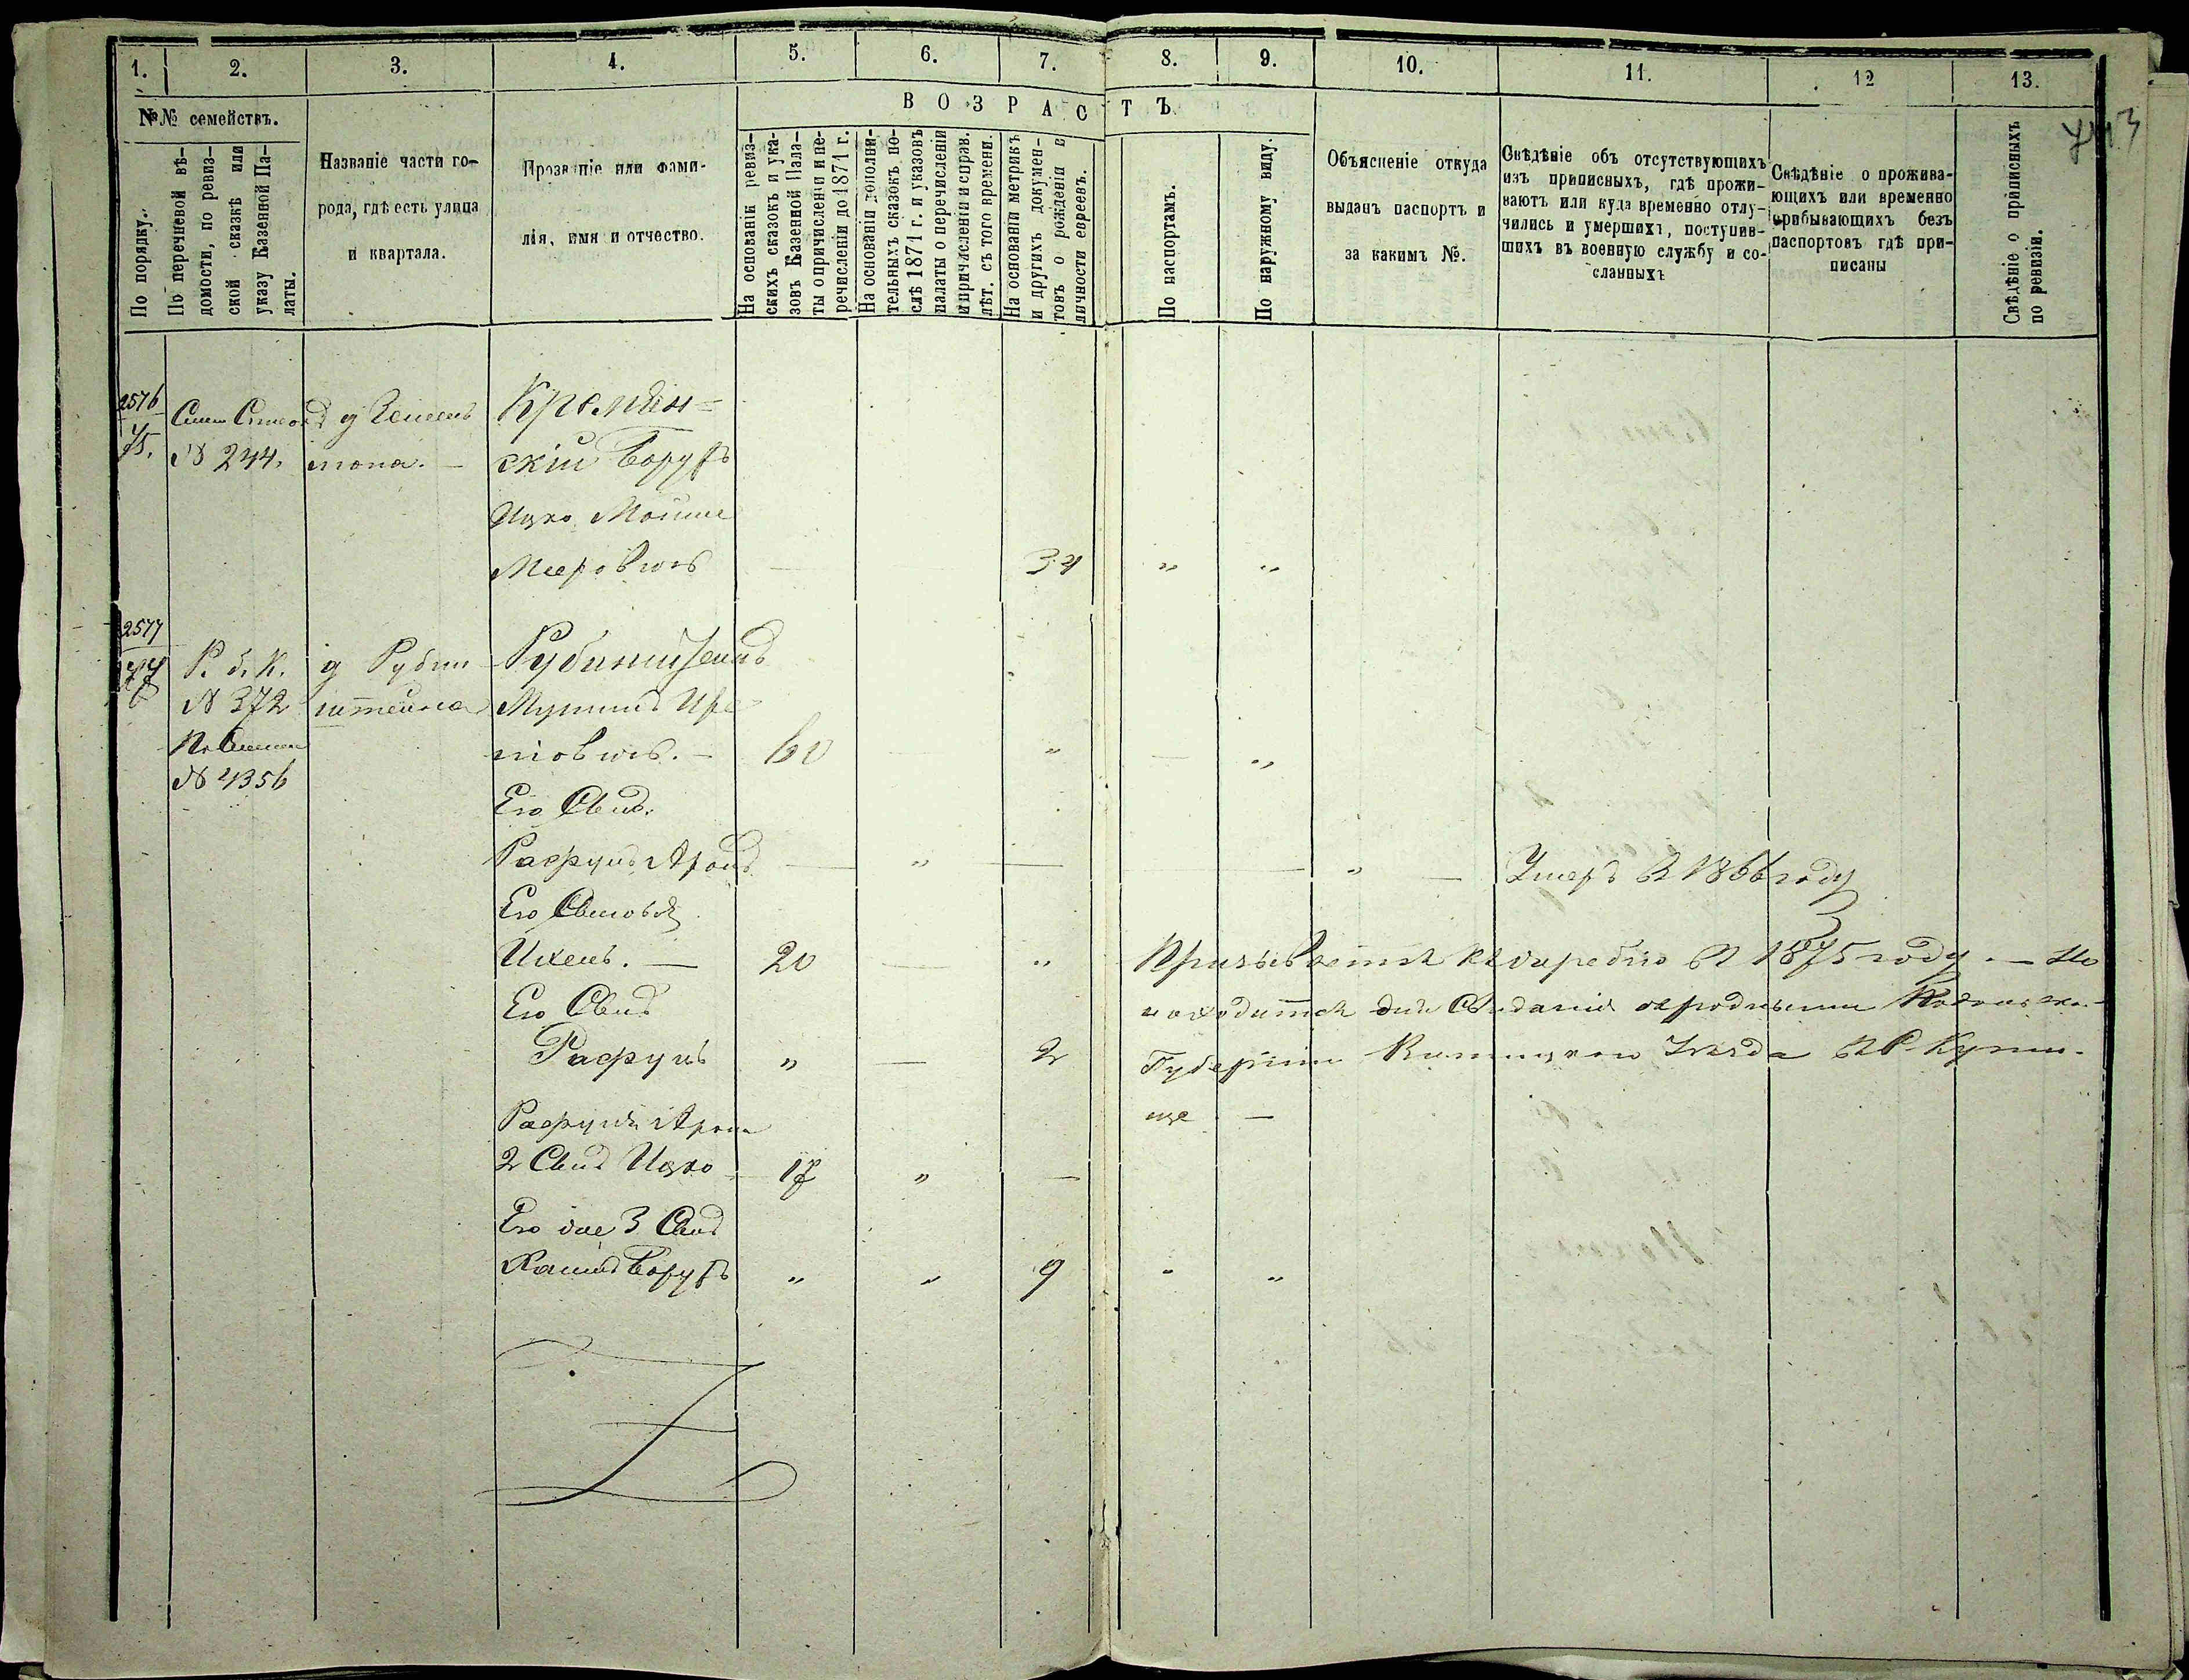 1.
2.
3.
4.
5.
6.
7.
8.
9.
10.
11.
12
13.
743
№№ семействъ.
По порядку.
По перечневой вѣ-
домости, по ревиз-
ской сказкѣ или
указу Казенной Па-
латы.
Названіе части го-
рода, гдѣ есть улица
и квартала.
Прозваніе или фами-
лія, имя и отчество.
ВОЗРАСТЪ
На основаніи ревиз-
скихъ сказокъ и ука-
зовъ Казенной Пала-
ты о причисленіи и пе-
речисленіи до 1871 г.
На основаніи дополни-
тельныхъ сказокъ по-
слѣ 1871 г. и указовъ
палаты о перечисленіи
и причисленіи и справ.
лѣт. съ того времени.
На основаніи метрикъ
и другихъ докумен-
товъ о рожденіи и
личности евреевъ.
По паспортамъ.
По наружному виду.
Объясненіе откуда
выданъ паспортъ и
за какимъ №.
Свѣдѣніе объ отсутствующихъ
изъ приписныхъ, гдѣ прожи-
ваютъ или куда временно отлу-
чились и умершихъ, поступив-
шихъ въ военную службу и со-
сланныхъ
Свѣдѣніе о прожива-
ющихъ или временно
прибывающихъ безъ
паспортовъ гдѣ при-
писаны
Свѣдѣніе о приписныхъ
по ревизіи.
2576
75.
№ 244.
Кремен=
скій Борухъ
Ицко Мошие
Мееровичъ
34
2577
77
Р. б. К.
№ 372
№ 4356
д Рубин
штейна
Рубинштейнъ
60
Его Сынъ
Рафуиль Аронъ
Умеръ въ 1866 году
Его Сыновья
Ихель.
20
Призывается къ жребію въ 1875 году. — Но
находится для свиданія съ родными
Его Сынъ
Рафуиль
2
Губерніи Уѣзда
ще
Рафуиля Арона
2 Сынъ Ицко
17
Его же 3 Сынъ
Борухъ
9